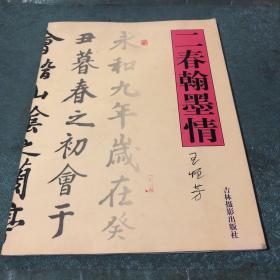 二春翰墨情
王恒芳
吉林摄影出版社
永和九年歲在癸
丑暮春之初會于
會稽山陰之蘭亭